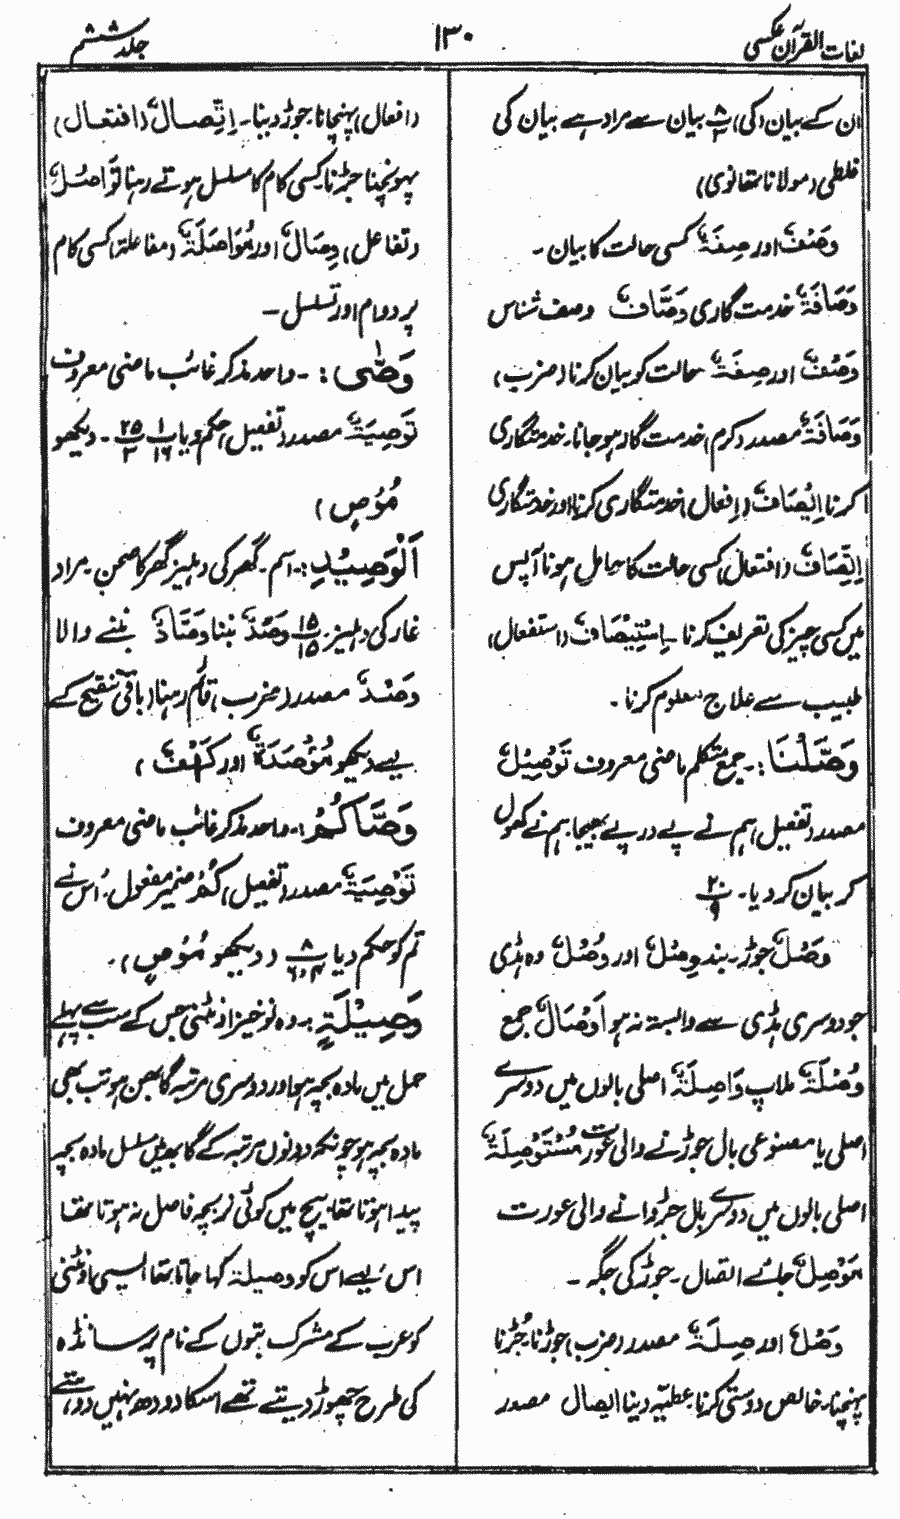 لغات القرآن عکسی
۱۳۰
جلد ششم
ان کے بیان (کی) ۸/۳ بیان سے مراد ہے بیان کی
غلطی (مولانا تھانوی)
وَصْفٌ اور صِفَةٌ کسی حالت کا بیان -
وَصَافَةٌ خدمت گاری وَصَّافٌ وصف شناس
وَصْفٌ اور صِفَةٌ حالت کو بیان کرنا (ضرب)
وَصَافَةٌ مصدر (کرم) خدمت گار ہو جانا۔ خدمتگاری
کرنا اِيْصَافٌ (اِفعال) خدمتگاری کرنا اور خدمتگاری
اِتِّصَافٌ (افتعال) کسی حالت کا حامل ہونا آپس
میں کسی چیز کی تعریف کرنا - اِسْتِيْصَافٌ (استفعال)
طبیب سے علاج معلوم کرنا -
وَصَّلْنَا :۔ جمع متکلم ماضی معروف تَوْصِيْلٌ
مصدر (تفعیل) ہم نے پے در پے بھیجا ہم نے کھول
کر بیان کر دیا - ۲۰/۹
وَصْلٌ جوڑ۔ بند وِصْلٌ اور وُصْلٌ وہ ہڈی
جو دوسری ہڈی سے وابستہ نہ ہو اَوْصَالٌ جمع
وُصْلَةٌ ملاپ وَاصِلَةٌ اصلی بالوں میں دوسرے
اصلی یا مصنوعی بال جوڑنے والی عورت مُسْتَوْصِلَةٌ
اصلی بالوں میں دوسرے بال جڑوانے والی عورت
مَوْصِلٌ جائے اتصال - جوڑ کی جگہ -
وَصْلٌ اور صِلَةٌ مصدر (ضرب) جوڑنا جُڑنا
پہنچنا۔ خالص دوستی کرنا عطیہ دینا ایصال مصدر
(افعال) پہنچانا۔ جوڑ دینا۔ اِتِّصَالٌ (افتعال)
پہونچنا جڑنا کسی کام کا مسلسل ہوتے رہنا تَوَاصُلٌ
(تفاعل) وِصَالٌ اور مُوَاصَلَةٌ (مفاعلة) کسی کام
پر دوام اور تسلسل -
وَصّٰى :۔ واحد مذکر غائب ماضی معروف
تَوْصِيَةٌ مصدر (تفعیل) حکم دیا ۱/۱۶ ۲۵/۳ - (دیکھو
مُوْصٍ)
اَلْوَصِيْدِ :۔ اسم - گھر کی دہلیز گھر کا صحن۔ مراد
غار کی دہلیز ۱۵/۱۵ وَصْدٌ بننا وَصَّادٌ بننے والا
وَصْدٌ مصدر (ضرب) قائم رہنا (باقی تنقیح کے
لیے دیکھو مُؤْصَدَةٌ اور كَهْفٌ)
وَصّٰىكُمْ :۔ واحد مذکر غائب ماضی معروف
تَوْصِيَةٌ مصدر (تفعیل) كُمْ ضمیر مفعول۔ اُس نے
تم کو حکم دیا ۸/۴و۶ (دیکھو مُوْصٍ) -
وَصِيْلَةٍ :۔ وہ نو خیز اونٹنی جس کے سب سے پہلے
حمل میں مادہ بچہ ہو اور دوسری مرتبہ گابھن ہو تب بھی
مادہ بچہ ہو چونکہ دونوں مرتبہ کے گابھ میں مسلسل مادہ بچہ
پیدا ہوتا تھا۔ بیچ میں کوئی نر بچہ فاصل نہ ہوتا تھا
اس لیے اس کو وصیلہ کہا جاتا تھا ایسی اونٹنی
کو عرب کے مشرک بتوں کے نام پر سانڈہ
کی طرح چھوڑ دیتے تھے اسکا دودھ نہیں دوہتے